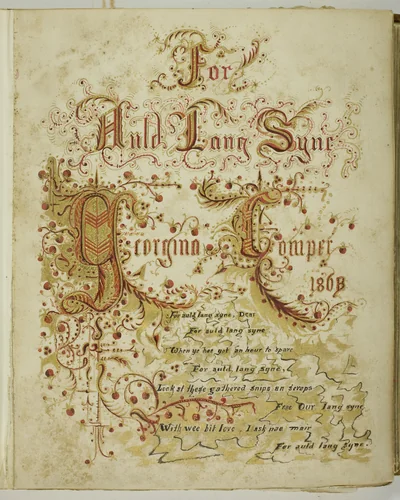 For
Auld Lang Syne
Georgina Cowper
186B
For auld lang syne, Dear
For auld lang syne
When ye hae got an hour to spare
For auld lang syne,
Look at these gathered snips an scraps
Frae Our lang syne
With wee bit love, I ask nae mair
For auld lang syne.